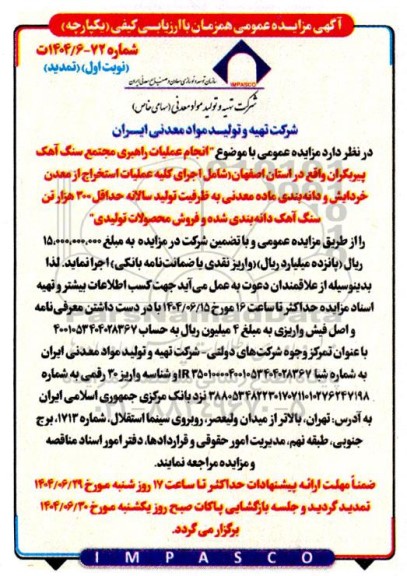 آگهی مزایده عمومی همزمان با ارزیابی کیفی (یکپارچه)
شماره ۷۲-۱۴۰۴/۶ت
(نوبت اول) (تمدید)
IMPASCO
شرکت تهیه و تولید مواد معدنی (سهامی خاص)
شرکت تهیه و تولید مواد معدنی ایران
در نظر دارد مزایده عمومی با موضوع "انجام عملیات راهبری مجتمع سنگ آهک
پیربکران واقع در استان اصفهان (شامل اجرای کلیه عملیات استخراج از معدن
خردایش و دانه‌بندی ماده معدنی به ظرفیت تولید سالانه حداقل ۳۰۰ هزار تن
سنگ آهک دانه‌بندی شده و فروش محصولات تولیدی"
را از طریق مزایده عمومی و با تضمین شرکت در مزایده به مبلغ ۱۵.۰۰۰.۰۰۰.۰۰۰
ریال (پانزده میلیارد ریال) (واریز نقدی یا ضمانت‌نامه بانکی) اجرا نماید. لذا
بدینوسیله از علاقمندان دعوت به عمل می‌آید جهت کسب اطلاعات بیشتر و تهیه
اسناد مزایده حداکثر تا ساعت ۱۶ مورخ ۱۴۰۴/۰۶/۱۵ با در دست داشتن معرفی‌نامه
و اصل فیش واریزی به مبلغ ۴ میلیون ریال به حساب ۴۰۰۱۰۵۳۴۰۴۰۲۸۳۶۷
با عنوان تمرکز وجوه شرکت‌های دولتی - شرکت تهیه و تولید مواد معدنی ایران
به شماره شبا IR۳۵۰۱۰۰۰۰۴۰۰۱۰۵۳۴۰۴۰۲۸۳۶۷ و شناسه واریز ۳۰ رقمی به شماره
۳۸۸۰۵۳۴۸۲۲۳۰۱۷۰۷۱۱۰۱۰۲۷۶۲۴۷۱۹۸ نزد بانک مرکزی جمهوری اسلامی ایران
به آدرس: تهران، بالاتر از میدان ولیعصر، روبروی سینما استقلال، شماره ۱۷۱۳، برج
جنوبی، طبقه نهم، مدیریت امور حقوقی و قراردادها، دفتر امور اسناد مناقصه
و مزایده مراجعه نمایند.
ضمناً مهلت ارائه پیشنهادات حداکثر تا ساعت ۱۷ روز شنبه مورخ ۱۴۰۴/۰۶/۲۹
تمدید گردید و جلسه بازگشایی پاکات صبح روز یکشنبه مورخ ۱۴۰۴/۰۶/۳۰
برگزار می گردد.
I M P A S C O